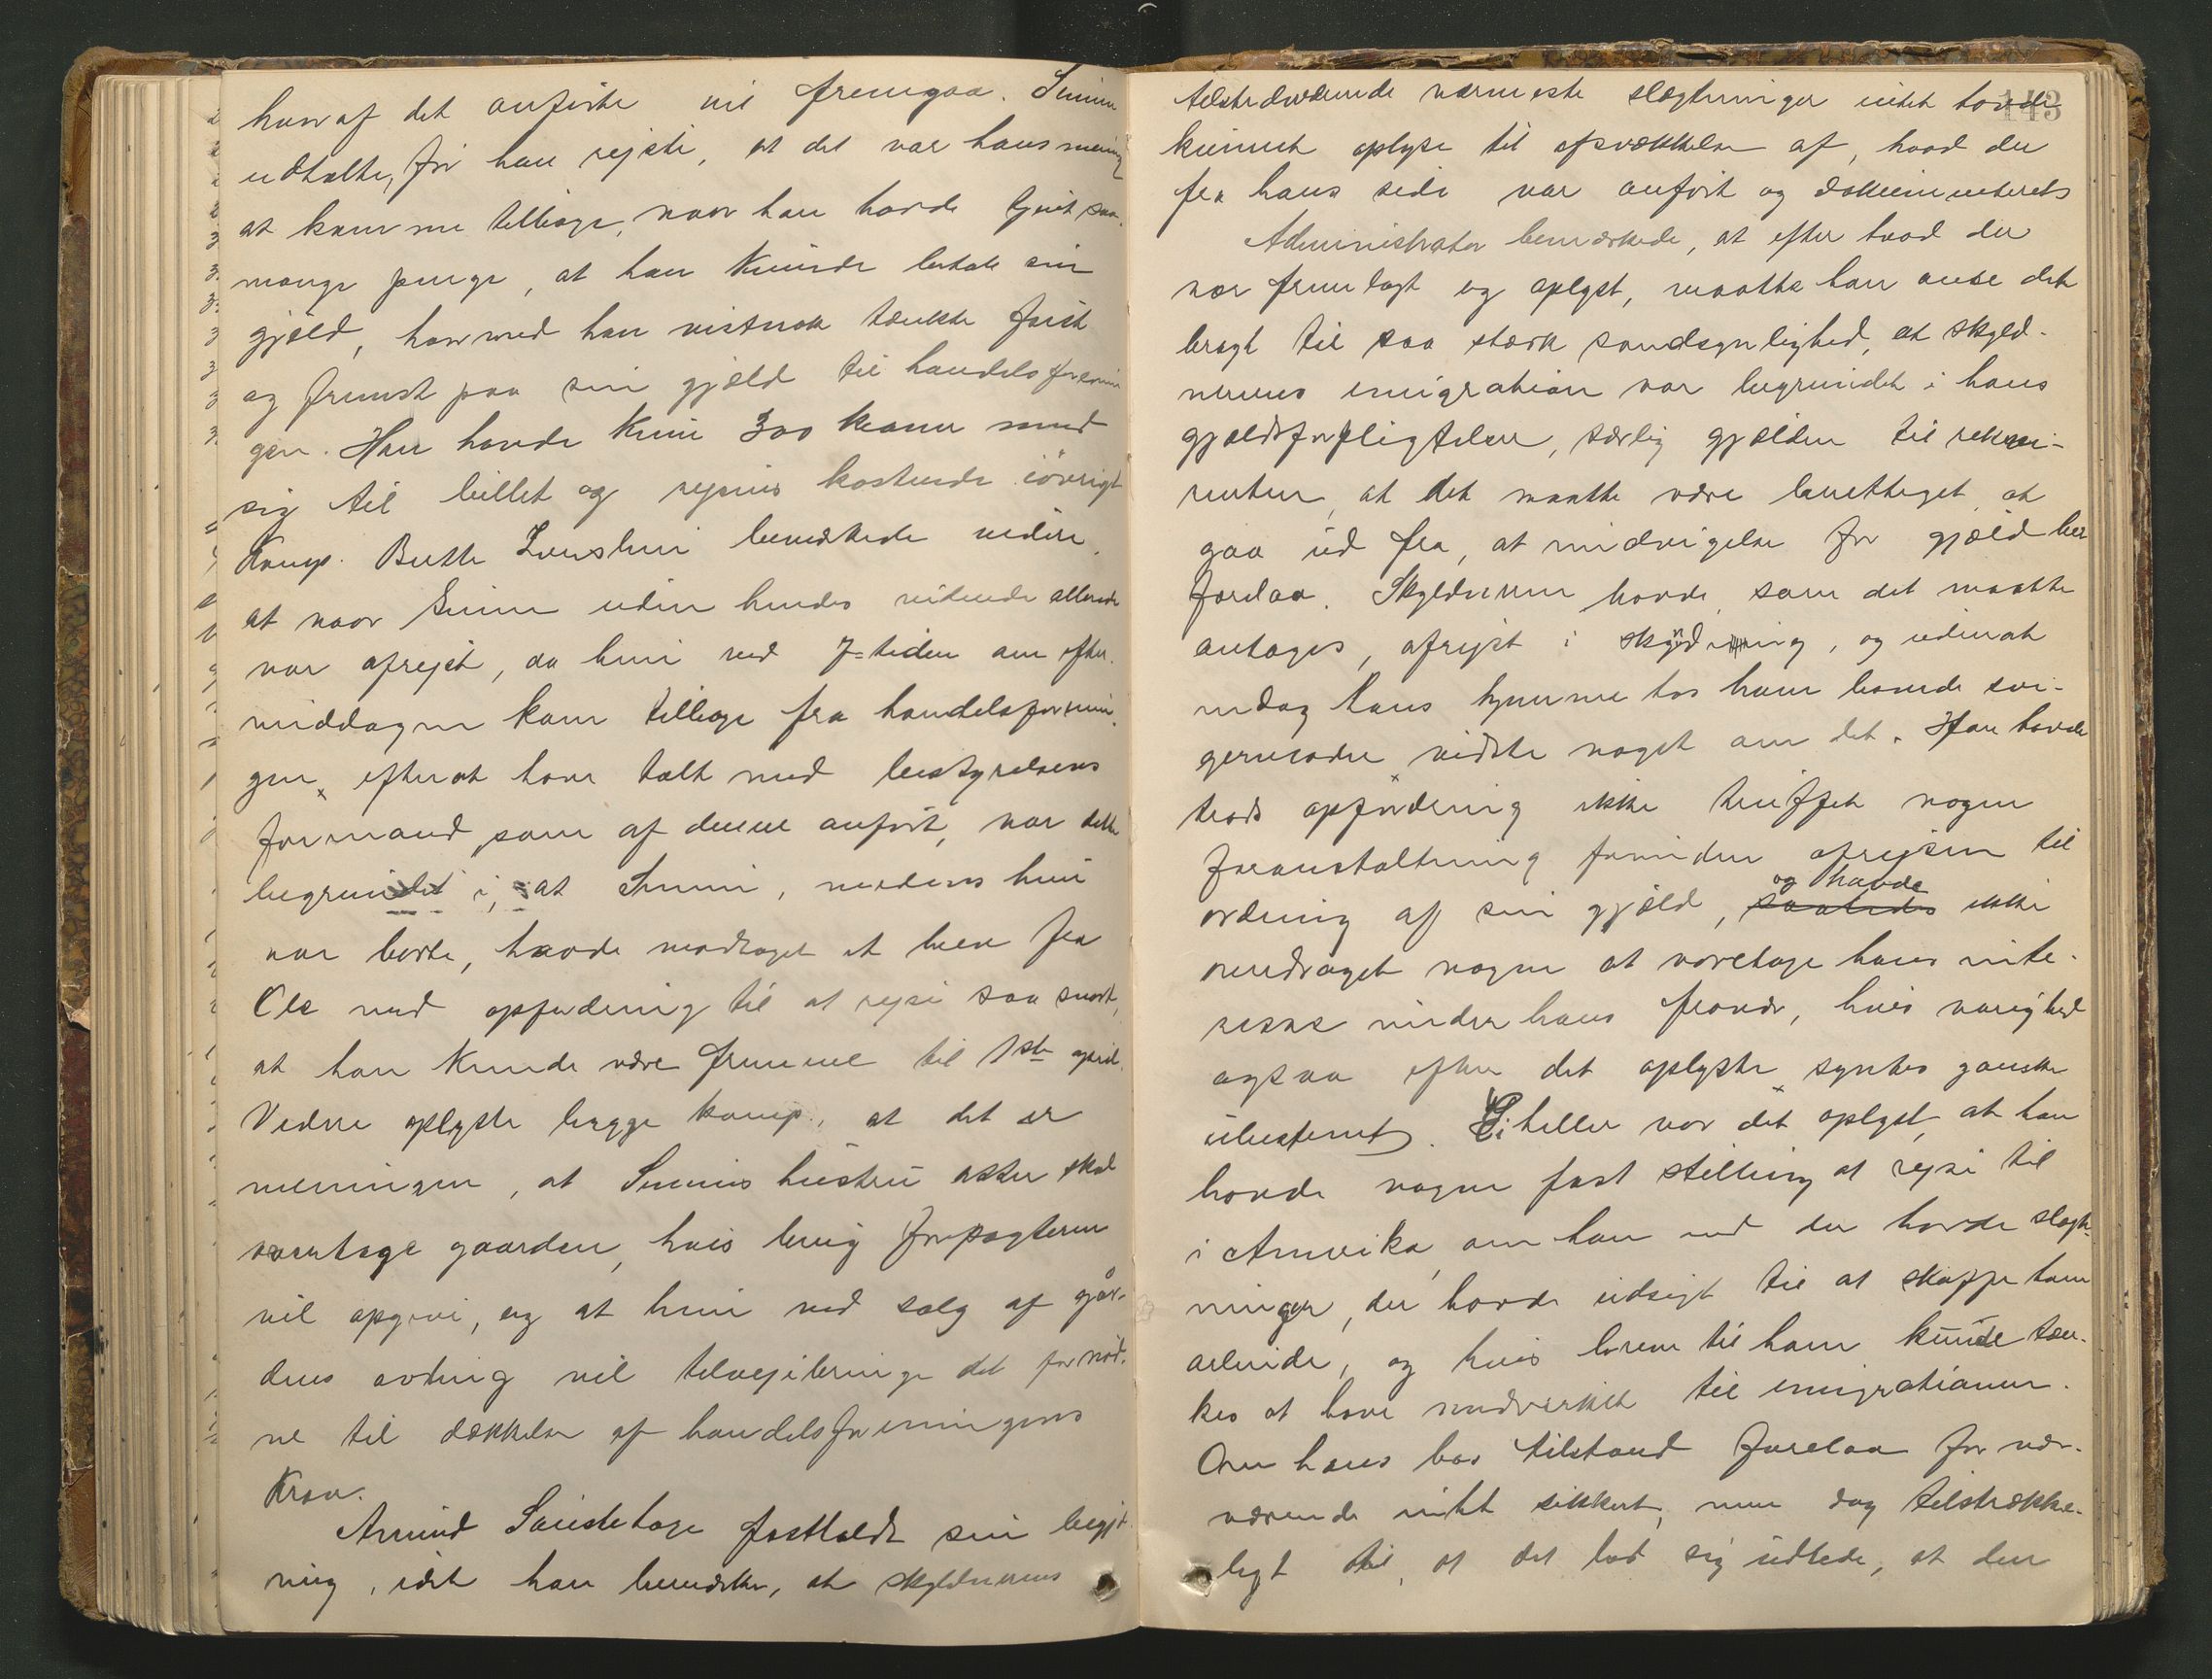 hvoraf det anførte vil fremgaa. Simin
udtalte, før han rejste, at det var hans mening
at komme tilbage, naar han havde tjent saa
mange penge, at han kunde betale sin
gjæld, hvormed han vistnok tænkte først
og fremst paa sin gjæld til handelsforenin
gen. Han havde kun 300 kroner med
sig til billet og rejsens kostende iøvrigt
Komp. bemærkede videre,
at naar Simin uden hendes vidende allerede
var afrejst, da hun ved 7-tiden om efter-
middagen kom tilbage fra handelsforenin-
gen, efter at have talt med bestyrelsens
formand, som af denne anført, var dette
begrundet i, at Simin, medens hun
var borte, havde modtaget et brev fra
Ole med opfordring til at rejse saa snart,
at han kunde være fremme til 1ste april.
Videre oplyste begge komp., at det er
meningen, at Simins hustru atter skal
overtage gaarden, hvis brug forpagteren
vil opgive, og at hun ved salg af går-
dens avling vil tilvejebringe det fornød-
ne til dækkelse af handelsforeningens
Krav.
Amund fastholdt sin begjæ-
ring, idet han bemærker, at skyldnerens
143
tilstedeværende nærmeste slægtninger intet havde
kunnet oplyse til afsvækkelse af, hvad der
fra hans side var anført og dokumenteret.
Administrator bemærkede, at efter hvad der
var fremlagt og oplyst, maatte han anse det
bragt til saa stærk sandsynlighed, at skyld-
nerens emigration var begrundet i hans
gjældsforpligtelser, særlig gjælden til rekvi-
renten, at det maatte være berettiget at
gaa ud fra, at undvigelse for gjæld her
forelaa. Skyldneren havde, som det maatte
antages, afrejst i skynding, og uden at
endog hans hjemme hos ham boende svi-
germoder vidste noget om det. Han havde
trods opfordring ikke truffet nogen
foranstaltning forinden afrejsen til
ordning af sin gjæld, <s>saaledes</s> og havde ikke
overdraget nogen at varetage hans inte-
resse under hans fravær, hvis varighed
ogsaa efter det oplyste syntes ganske
ubestemt. Ei heller var det oplyst, at han
havde nogen fast stilling at rejse til
i Amerika, om han end der havde slægt-
ninger, der havde udsigt til at skaffe ham
arbeide, og hvis breve til ham kunde tæn-
kes at have medvirket til emigrationen.
Om hans bos tilstand forelaa for nær-
værende intet sikkert, men dog tilstrække-
ligt til, at det lod sig udlede, at den